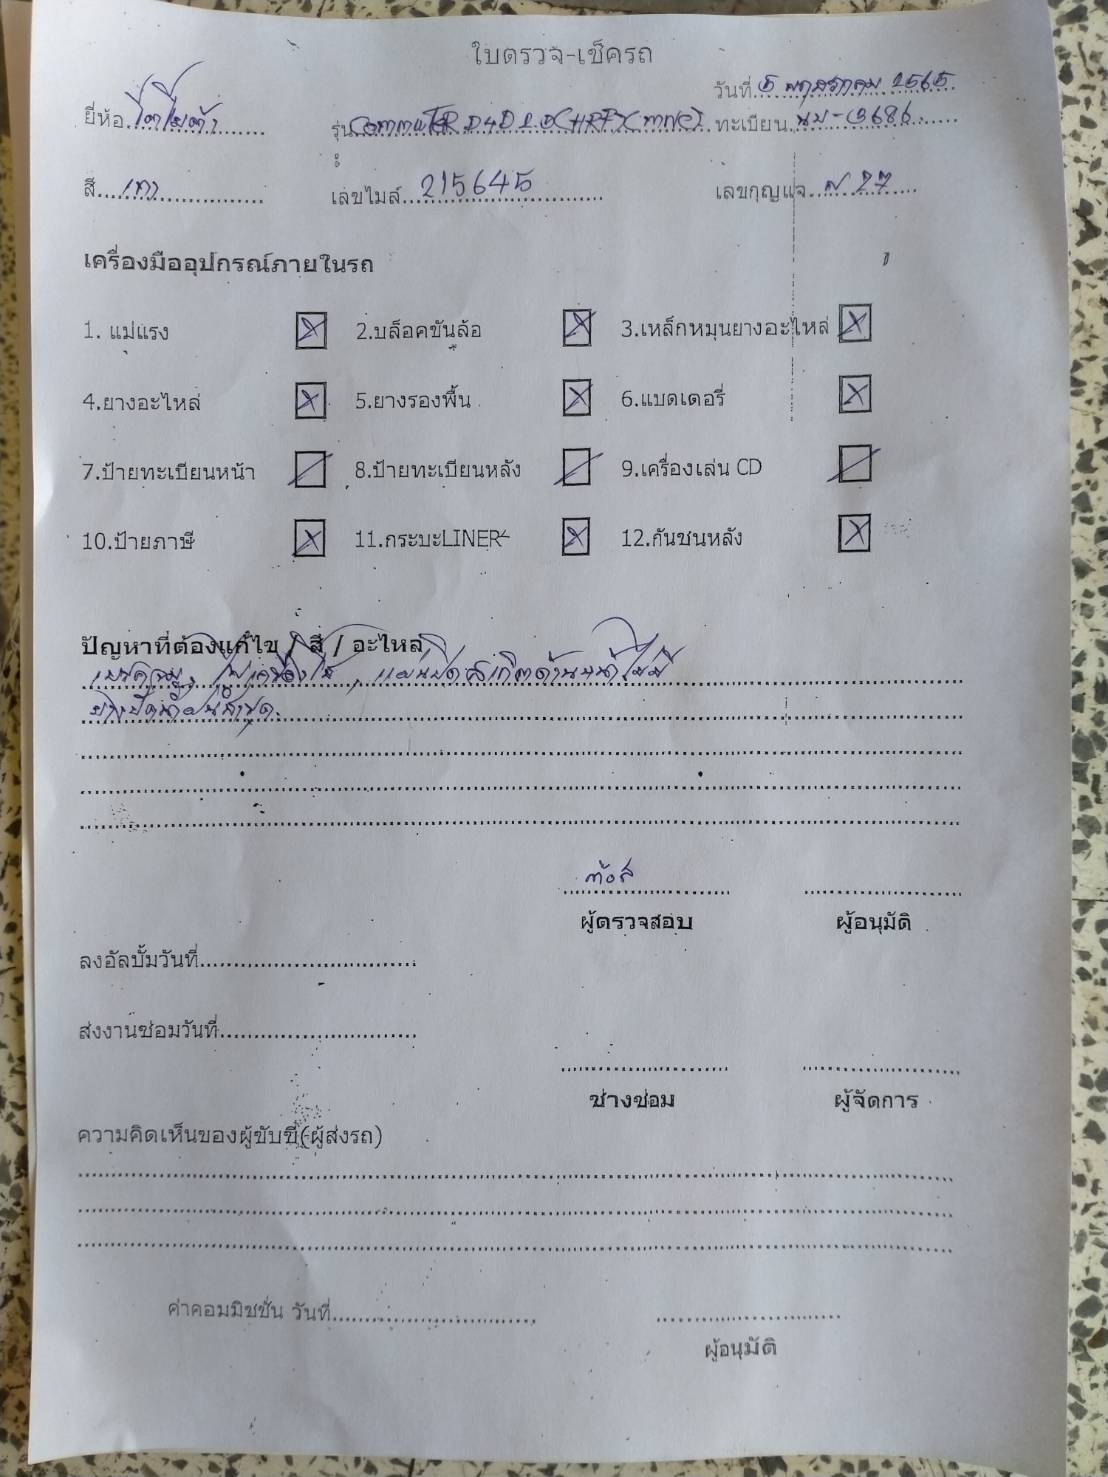 ใบตรวจ-เช็ครถ
วันที่ 5 พฤษภาคม 2565
ยี่ห้อ โตโยต้า รุ่น COMMUTER D4D ทะเบียน นข-3686
สี เทา เลขไมล์ 215645 เลขกุญแจ 27
เครื่องมืออุปกรณ์ภายในรถ
1. แม่แรง 2.บล็อคขันล้อ 3.เหล็กหมุนยางอะไหล่
4.ยางอะไหล่ 5.ยางรองพื้น 6.แบตเตอรี่
7.ป้ายทะเบียนหน้า 8.ป้ายทะเบียนหลัง 9.เครื่องเล่น CD
10.ป้ายภาษี 11.กระบะLINER 12.กันชนหลัง
ปัญหาที่ต้องแก้ไข / สี / อะไหล่
ด้านหน้าไม่มี
ชำรุด.
ผู้ตรวจสอบ ผู้อนุมัติ
ลงอัลบั้มวันที่
ส่งงานซ่อมวันที่
ช่างซ่อม ผู้จัดการ
ความคิดเห็นของผู้ขับขี่(ผู้ส่งรถ)
ค่าคอมมิชชั่น วันที่
ผู้อนุมัติ